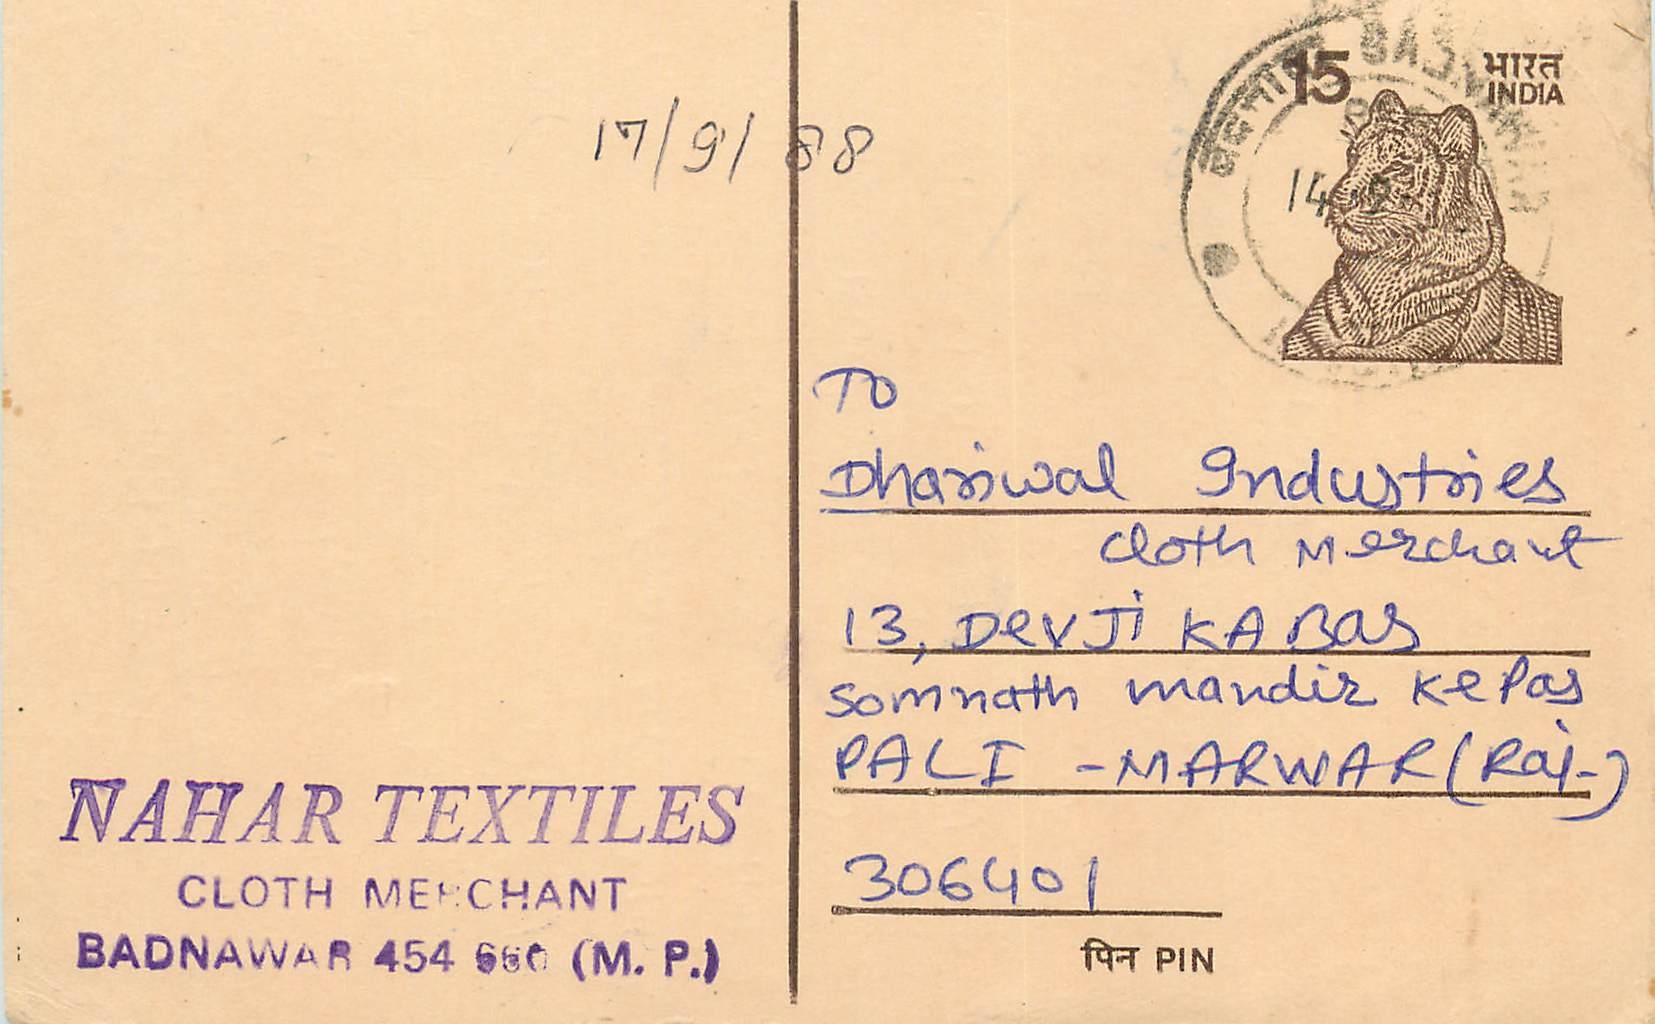 17/9/88
15 भारत
INDIA
14
TO
Dhariwal Industries
Cloth Merchant
13, Devji KA Bas
Somnath mandir ke Pas
PALI - MARWAR (Raj.)
306401
पिन PIN
NAHAR TEXTILES
CLOTH MERCHANT
BADNAWAR 454 660 (M. P.)